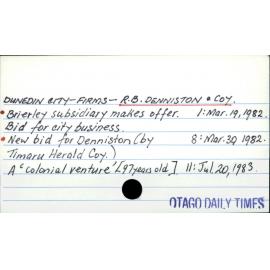 DUNEDIN CITY-FIRMS- R.B. DENNISTON & COY.
• Brierley subsidiary makes offer. 1: Mar. 19, 1982.
Bid for city business.
• New bid for Denniston (by 8: Mar. 30 1982.
Timaru Herald Coy.)
A "colonial venture" [97 years old] 11: Jul. 20, 1983.
OTAGO DAILY TIMES